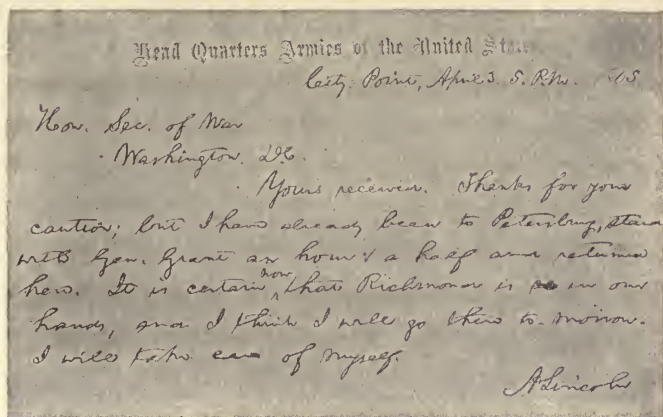 Head Quarters Armies of the United States
City Point, April 3. 5. P.M. 1865
Hon. Sec. of War
Washington. D.C.
Yours received. Thanks for your
caution; but I have already been to Petersburg, staid
with Gen. Grant an hour & a half and returned
here. It is certain now that Richmond is in our
hands, and I think I will go there to-morrow.
I will take care of myself.
A Lincoln